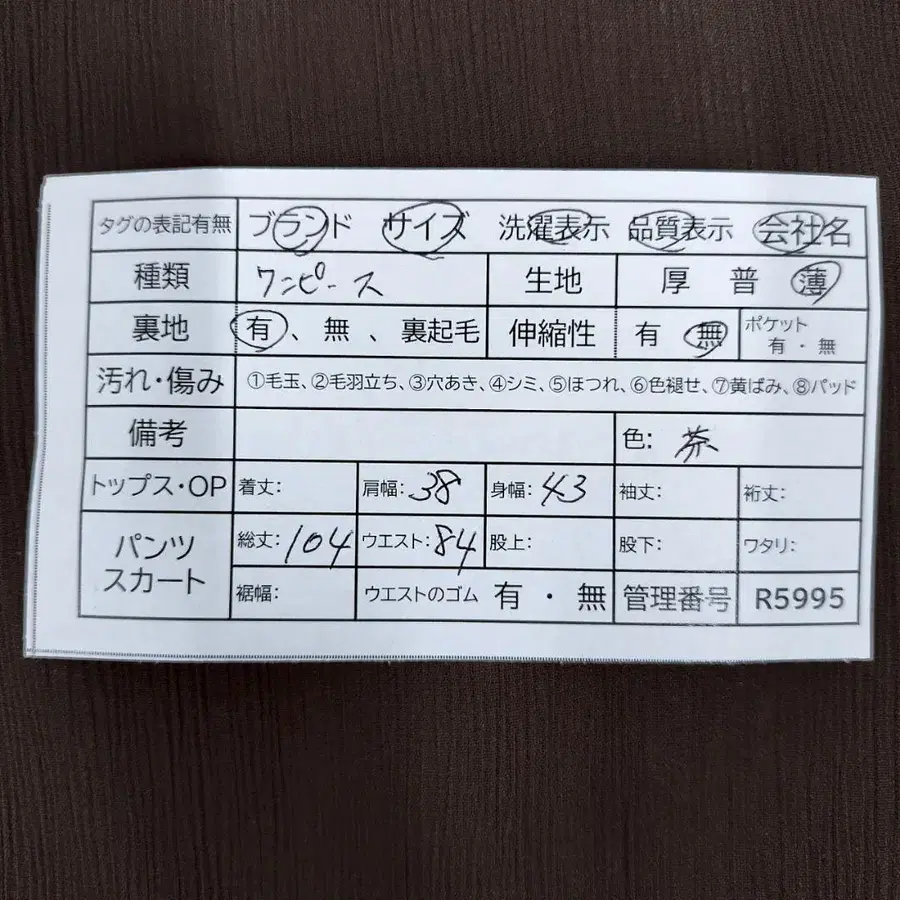 タグの表記有無 ブランド サイズ 洗濯表示 品質表示 会社名
種類 ワンピース 生地 厚 普 薄
裏地 有、無、裏起毛 伸縮性 有 無 ポケット 有・無
汚れ・傷み ①毛玉、②毛羽立ち、③穴あき、④シミ、⑤ほつれ、⑥色褪せ、⑦黄ばみ、⑧パッド
備考 色: 茶
トップス・OP 着丈: 肩幅:38 身幅:43 袖丈: 裄丈:
パンツ スカート 総丈:104 ウエスト:84 股上: 股下: ワタリ:
裾幅: ウエストのゴム 有・無 管理番号 R5995